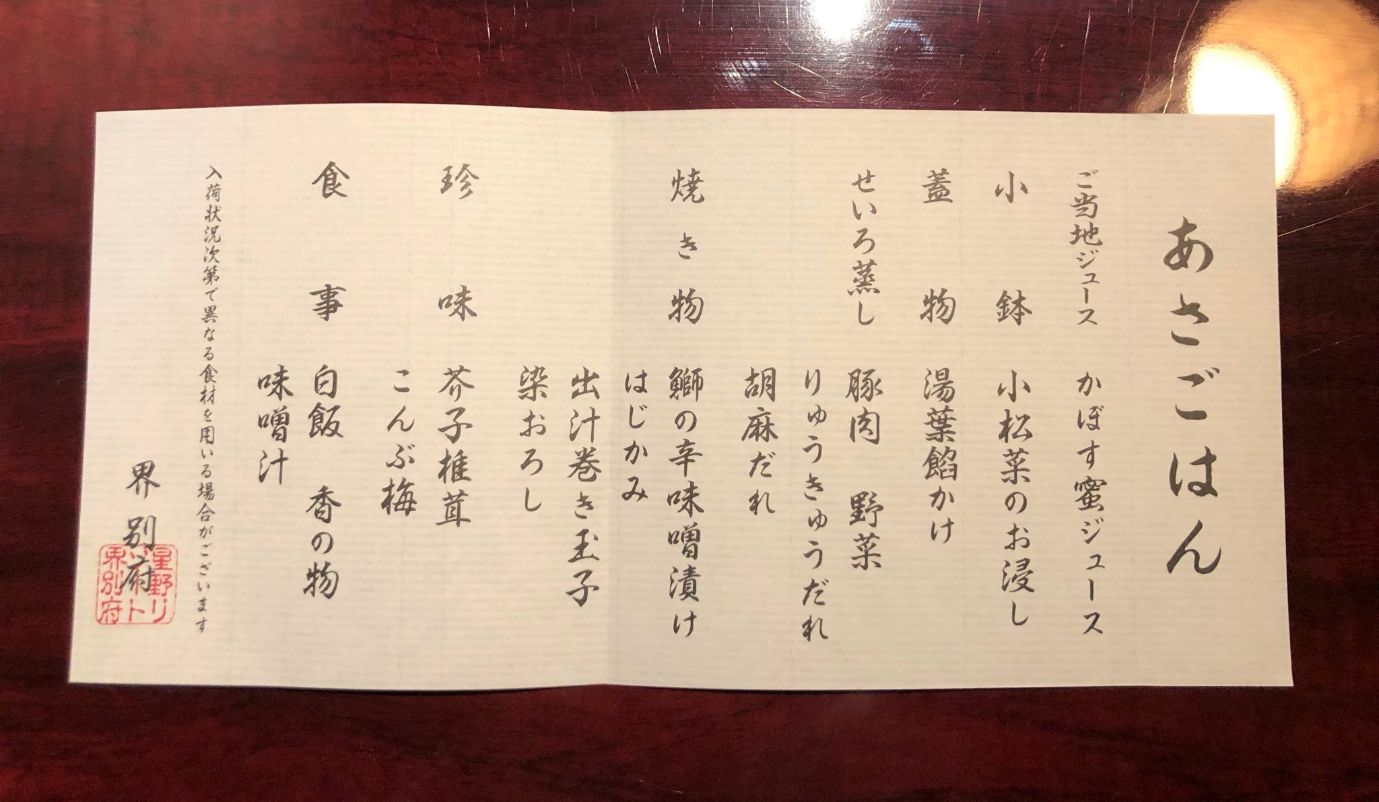 あさごはん
ご当地ジュース　かぼす蜜ジュース
小鉢　小松菜のお浸し
蓋物　湯葉餡かけ
せいろ蒸し　豚肉　野菜
りゅうきゅうだれ
胡麻だれ
焼き物　鰤の辛味噌漬け
はじかみ
出汁巻き玉子
染おろし
珍味　芥子椎茸
こんぶ梅
食事　白飯　香の物
味噌汁
入荷状況次第で異なる食材を用いる場合がございます
界 別府
星野リ
ゾート
界別府